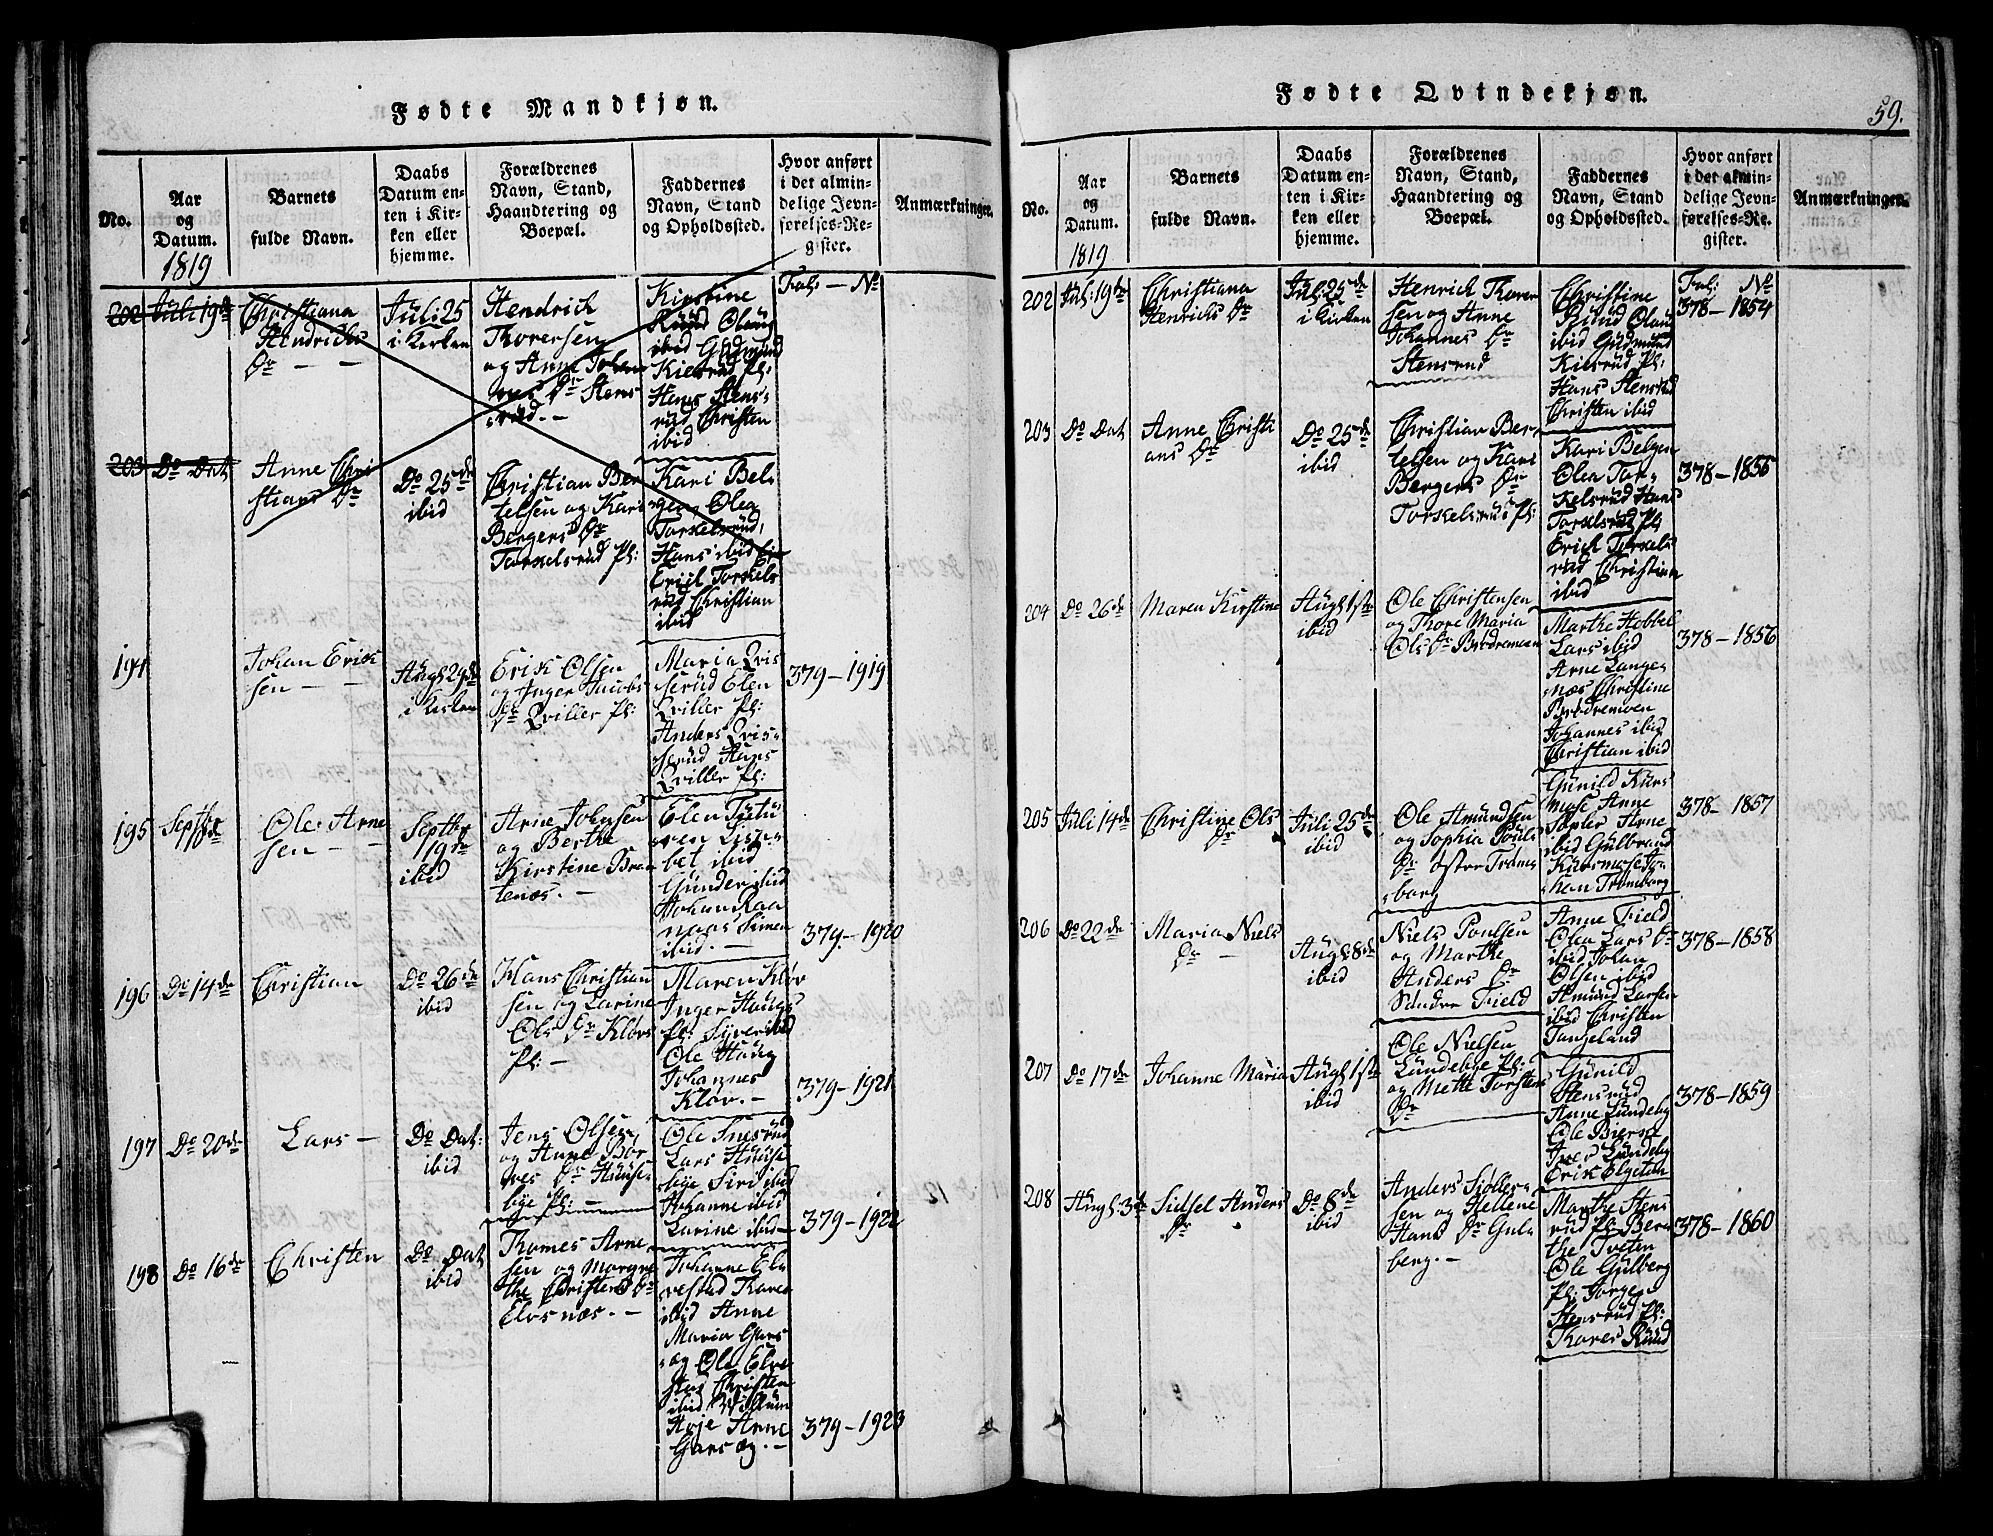 Fødte Mandkjøn.
No.
Aar
og
Datum.
1819
Barnets
fulde Navn.
Daabs
Datum en-
ten i Kir-
ken eller
hjemme.
Forældrenes
Navn, Stand,
Haandtering og
Boepæl.
Faddernes
Navn, Stand
og Opholdssted.
Hvor anført
i det almin-
delige Jevn-
førelses-Re-
gister.
Anmærkninger.
Fol: — No
202 Juli 19de
Christiana
Hendrichs
Dr — —
Juli 25
i Kirken
Hendrich
Thorersen
og Anne Johan
nes Dr Stens
rud. —
Kirstine
Ruud Olaug
ibid Gudmund
Kielsrud Pl:
Hans Stens-
rud Christen
ibid
203 Do Dat
Anne Chri
stians Dr
Do 25de
ibid
Christian Ber
telsen og Kari
Bergers Dr
Torkelsrud Pl:
Kari Bel-
gen Olea
Torkelsrud,
Hans ibid
Erich Torkels
rud Christian
ibid
194
Johan Erik
sen — —
Augl 29de
i Kirken
Erik Olsen
og Inger Jacobs
Dr Qviller Pl:
Maria Qvis
serud Elen
Qviller Pl:
Anders Qvis-
serud Hans
Qviller Pl:
379 — 1919
195 Septbr
Ole Arne
sen — —
Septbr
19de
ibid
Arne Johnsen
og Berthe
Kirstine Braa
tenæs. —
Elen Tietu
ven Lisa-
bet ibid
Gunder ibid
Johan Raa
naas Simen
ibid. —
379 — 1920
196 Do 14de
Christian
Do 26de
ibid
Hans Christian
sen og Larine
Ols Dr Kløvs
Pl: —
Maren Kløv
Inger Haugs
Pl: Syver ibid
Ole Haug
Johannes
Kløv. —
379 — 1921
197 Do 20de
Lars —
Do Dat:
ibid
Jens Olsen
og Anne Bor
res Dr Huuse-
bye Pl: —
Ole Snesrud
Lars Huuse
bye Siri ibid
Johanne ibid
Larine ibid —
379 — 1922
198 Do 16de
Christen
Do Dat
ibid
Thomes Arne
sen og Margre
the Christens Dr
Elvsnæs. —
Johanne El
vestad Karen
ibid Anne
Maria Gars
og Ole Elve
stad Christen
ibid Willum
Høje Anne
Garsøg. —
379 — 1923
Fødte Qvindekjøn.
59.
No.
Aar
og
Datum.
1819
Barnets
fulde Navn.
Daabs
Datum en-
ten i Kir-
ken eller
hjemme.
Forældrenes
Navn, Stand,
Haandtering og
Boepæl.
Faddernes
Navn, Stand
og Opholdssted.
Hvor anført
i det almin-
delige Jevn-
førelses-Re-
gister.
Anmærkninger.
Fol: No
202 Jul: 19de
Christiana
Henrichs Dr
Jul: 25de
i Kirken
Henrich Thorer
sen og Anne
Johannes Dr
Stensrud
Christine
Ruud Olaug
ibid Gudmund
Kielsrud Pl:
Hans Stensrud
Christen ibid
378 — 1854
203 Do Dat
Anne Christi
ans Dr
Do 25de
ibid
Christian Ber-
telsen og Kari
Bergers Dr
Torkelsruds Pl:
Kari Belgen
Olea Tor-
kelsrud Hans
Torkelsrud Pl:
Erich Torkels
rud Christian
ibid
378 — 1855
204 Do 26de
Maren Kirstine
Augl 1ste
ibid
Ole Christensen
og Thore Maria
Ols Dr Brødremoen
Marthe Hobbel
Lars ibid
Arne Lange-
næs Christine
Brødremoen
Johannes ibid
Christian ibid
378 — 1856
205 Juli 14de
Christine Ols
Dr
Juli 25de
ibid
Ole Amundsen
og Sophia Pouls
Dr øster Trøms
borg
Gunild Kars
mose Anne
Sopler Arne
ibid Gulbrand
Karsmose Jo-
han Trømborg
378 — 1857
206 Do 22de
Maria Niels
Dr —
Augl: 8de
ibid
Niels Poulsen
og Marthe
Anders Dr
Søndre Field
Anne Field
Olea Lars Dr
ibid Johan
Olsen ibid
Amund Larsen
ibid Christen
Tangeland
378 — 1858
207 Do 17de
Johanne Maria
Augl 1ste
ibid
Ole Nielsen
Lundebye Pl:
og Mette Torstens
Dr
Gunild
Stensrud
Anne Lundeby
Ole Bierke
Iver Lundeby
Erik Elgetun
378 — 1859
208 Augl: 3de
Sidsel Anders
Dr
Do 8de
ibid
Anders Siøller-
sen og Hellene
Hans Dr Gul-
berg. —
Marthe Stens
rud Pl Ber-
the Tveten
Ole Gulberg
Pl: Jørgen
Stensrud Pl:
Thores Ruud
378 — 1860